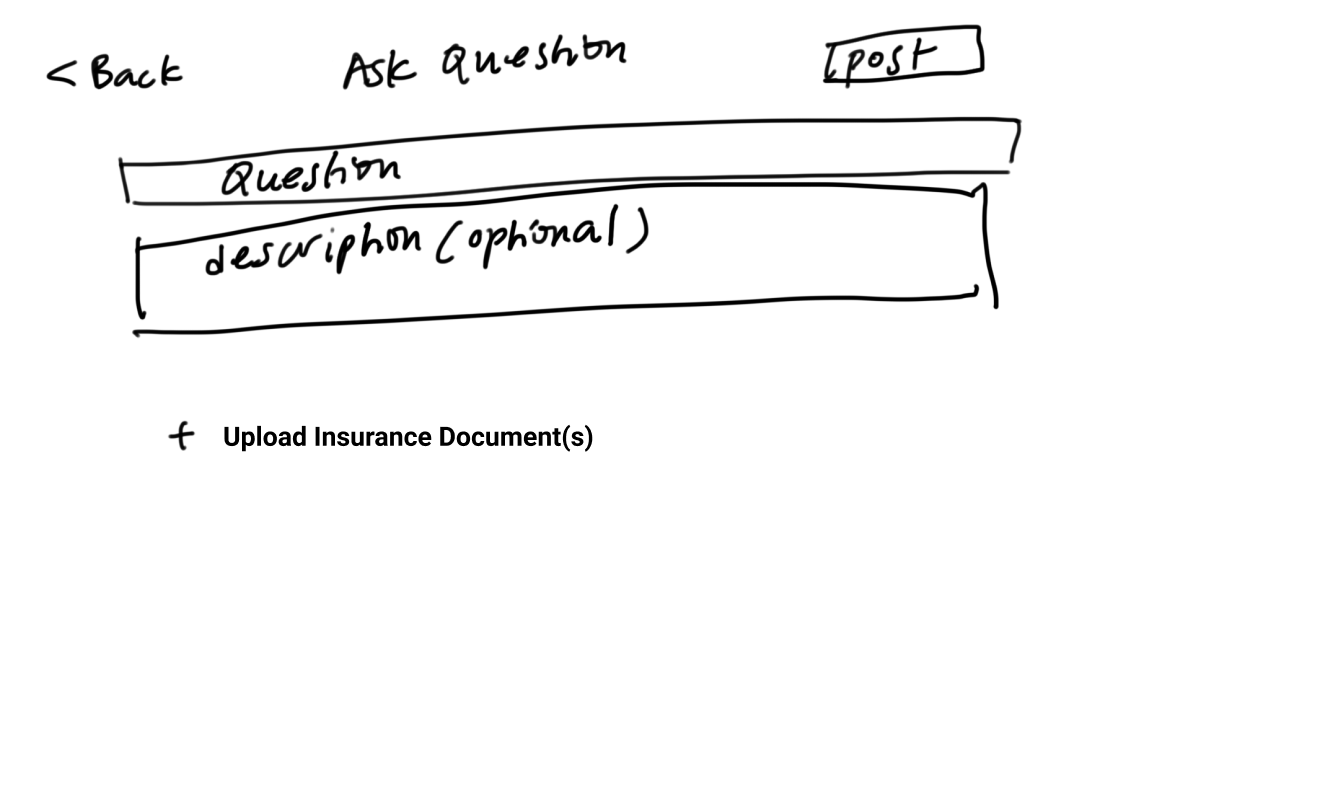 < Back Ask Question post
Question
description (optional)
+ Upload Insurance Document(s)